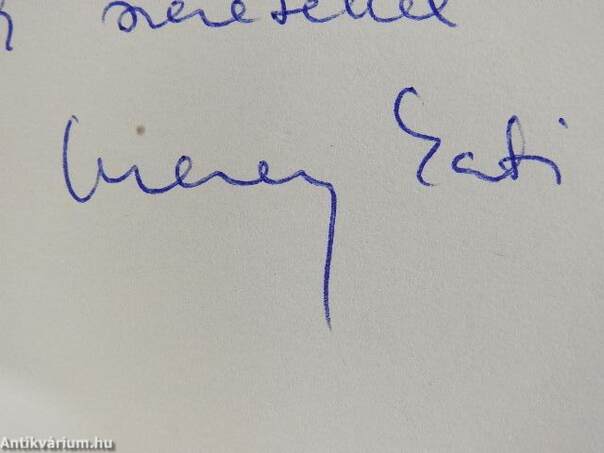 szeretettel
Mezey Kati
Antikvárium.hu